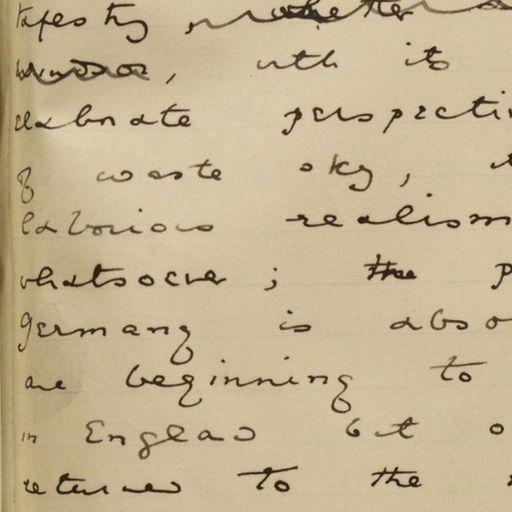 tapestry, whether
with its
elaborate perspecti
of waste sky, 
laborious realism
whatsoever; the p
Germany is abso
are beginning to
in England but o
returned to the